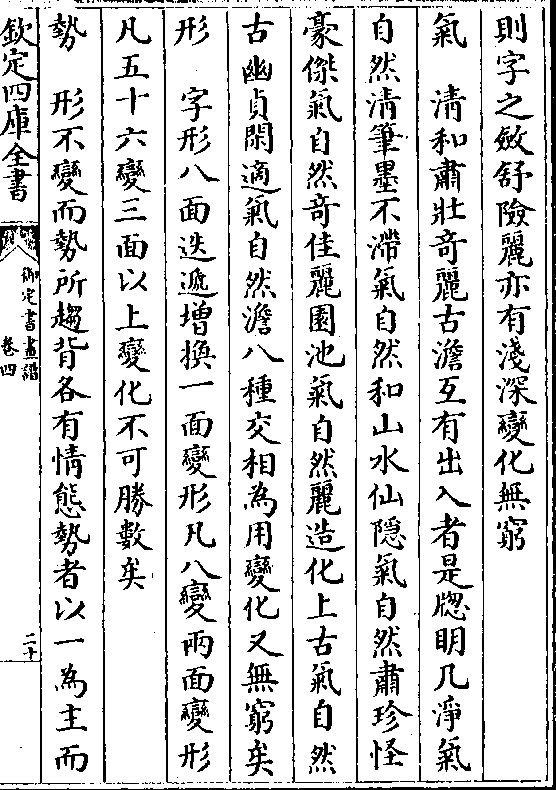 則字之斂舒險麗亦有淺深變化無窮
氣　清和肅壯奇麗古澹互有出入者是牕明几淨氣
自然清筆墨不滯氣自然和山水仙隠氣自然肅珍怪
豪傑氣自然竒佳麗園池氣自然麗造化上古氣自然
古幽貞閑適氣自然澹八種交相為用變化又無窮矣
形　字形八面迭遞增換一面變形凡八變兩面變形
凡五十六變三面以上變化不可勝數矣
勢　形不變而勢所趨背各有情態勢者以一為主而
欽定四庫全書
御定書畫譜
卷四
二十